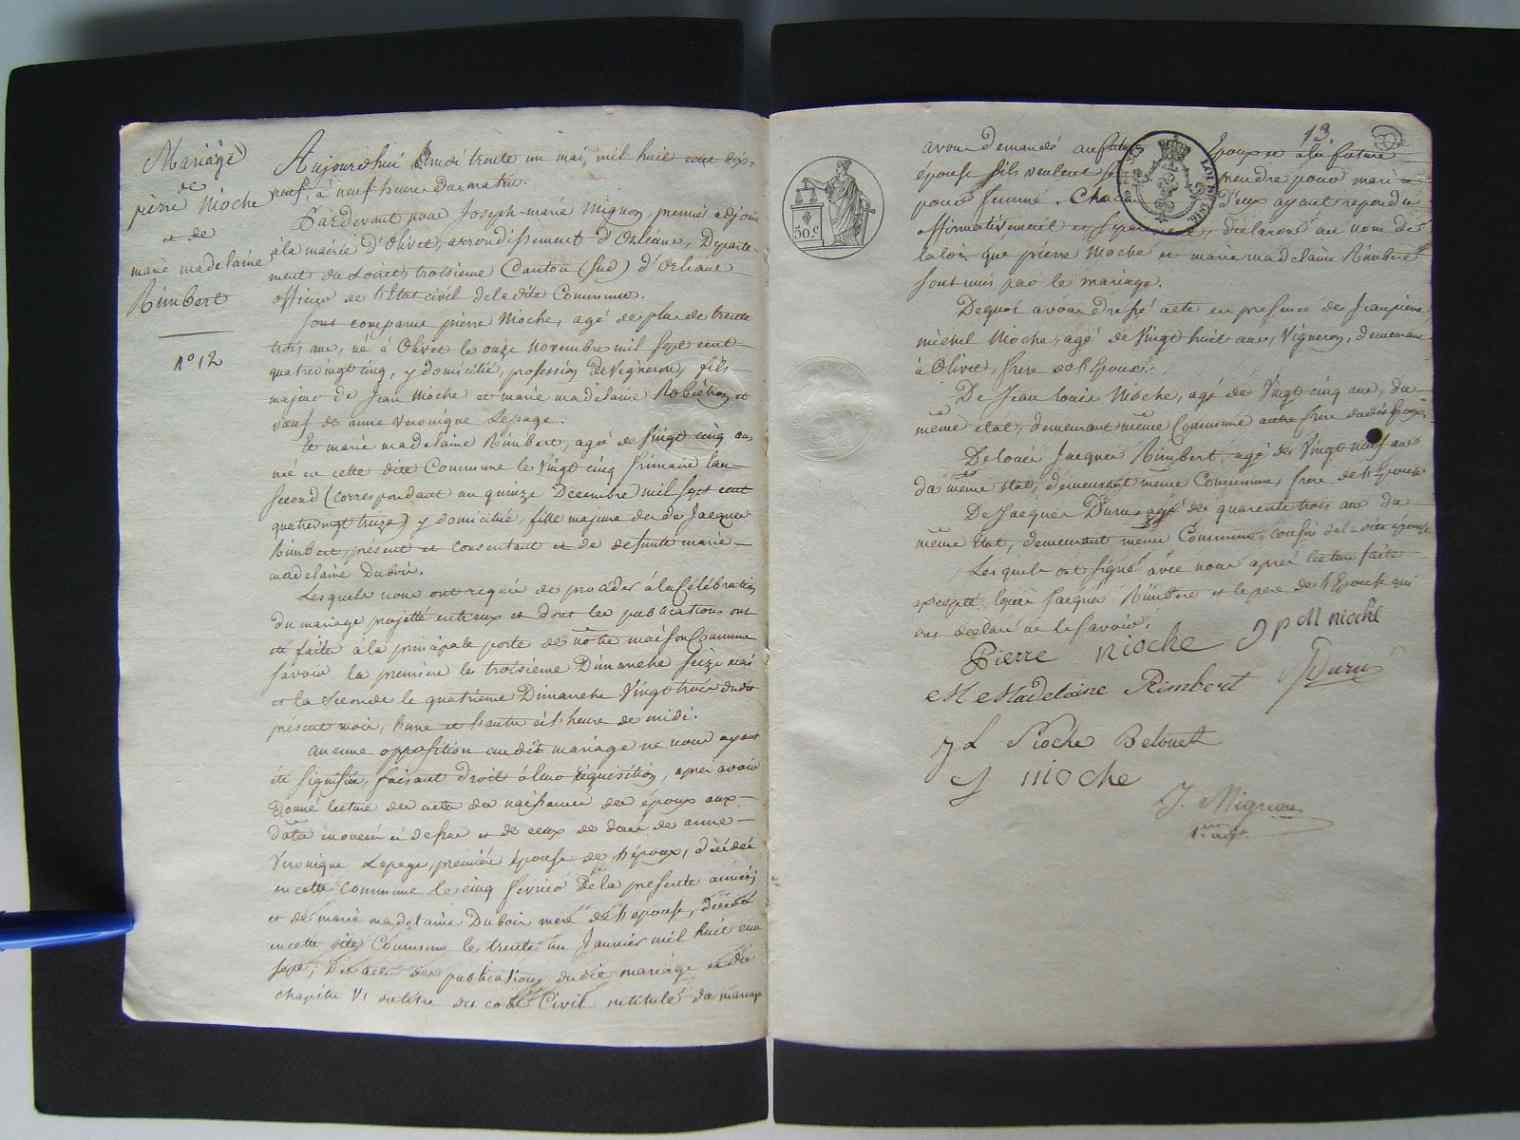 Mariage
de
pierre Nioche
et de
marie madelaine
Rimbert
n° 12
Aujourdhui Lundi trente un mai, mil huit cent dix-
neuf, à neuf heures Du matin.
Pardevant nous Joseph-marie Mignon, premier adjoint
à la mairie d'Olivet, arrondissement d'Orléans, Departe-
ment du Loiret, troisieme Canton (Sud) d'Orléans
officier de l'Etat civil de la dite Commune.
Sont comparus pierre Nioche, agé de plus de trente
trois ans, né à Olivet le onze Novembre mil sept cent
quatrevingt cinq, y domicilié, profession de Vigneron, fils
majeur de Jean Nioche et marie madelaine et
veuf de anne Veronique Lepage.
Et marie madelaine Rimbert, agée de Vingt cinq ans,
née en cette dite Commune le Vingt cinq frimaire l'an
second (correspondant au quinze Decembre mil sept cent
quatrevingt treize) y domiciliée, fille majeure de Jacques
Rimbert, présent et consentant et de defunte marie
madelaine Dubois.
Lesquels nous ont requis de proceder à la Célébration
du mariage projetté entr'eux et dont les publications ont
été faites à la principale porte de notre maison Commune
savoir la premiere le troisieme Dimanche Seize mai
et la Seconde le quatrieme Dimanche Vingt trois dudit
présent mois, l'une et l'autre à l'heure de midi.
aucune opposition au dit mariage ne nous ayant
été signifiée, faisant droit à leur requisition, après avoir
donné lecture des actes de naissance des époux aux
dates énoncées ci dessus et de ceux de décès de anne
Veronique Lepage, premiere épouse de l'époux, décédée
en cette commune le cinq fevrier De la presente année,
et de marie madelaine Dubois mere de l'épouse, décédée
en cette dite Commune le trente un Janvier mil huit cent
sept, des actes des publications dudit mariage et du
chapitre VI du titre du code Civil intitulé du mariage
13
avons demandé au futur Epoux et à la future
épouse s'ils veulent se prendre pour mari et
pour femme. Chacun d'eux ayant repondu
affirmativement et separement, déclarons au nom de
la loi, que pierre Nioche et marie madelaine Rimbert
sont unis par le mariage.
Dequoi avons dressé acte en presence de Jean pierre
michel Nioche, agé de Vingt huit ans, Vigneron, demeurant
à Olivet, frere de l'Epoux.
De Jean Louis Nioche, agé de Vingt cinq ans, du
même état, demeurant même Commune autre frere dudit Epoux,
De Louis Jacques Rimbert, agé de Vingt neuf ans
du même état, demeurant même Commune, frere de l'Epouse
De Jacques Duru agé de quarente trois ans du
même Etat, demeurant même Commune, cousin de la dite épouse.
Lesquels ont signé avec nous après lecture faite
excepté Louis Jacques Rimbert et le pere de l'Epouse qui
ont déclaré ne le savoir.
Pierre nioche J p M nioche
M Madelaine Rimbert J Duru
J L Nioche Belouet
J nioche
J. Mignon
1er adjt.
30.c